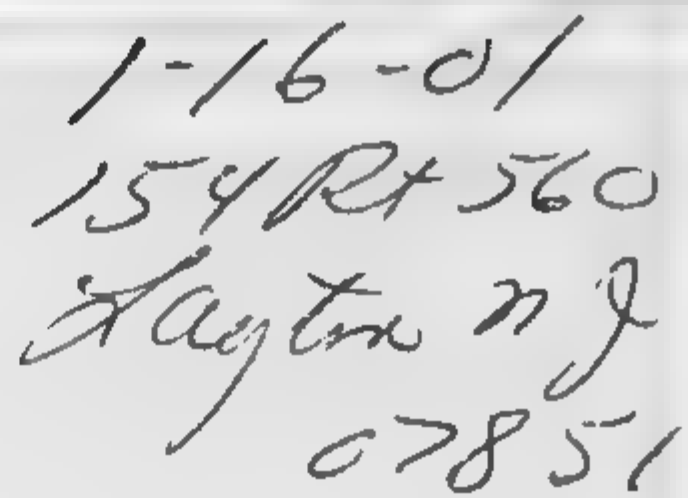 1-16-01
154 Rt 560
Layton NJ
07851